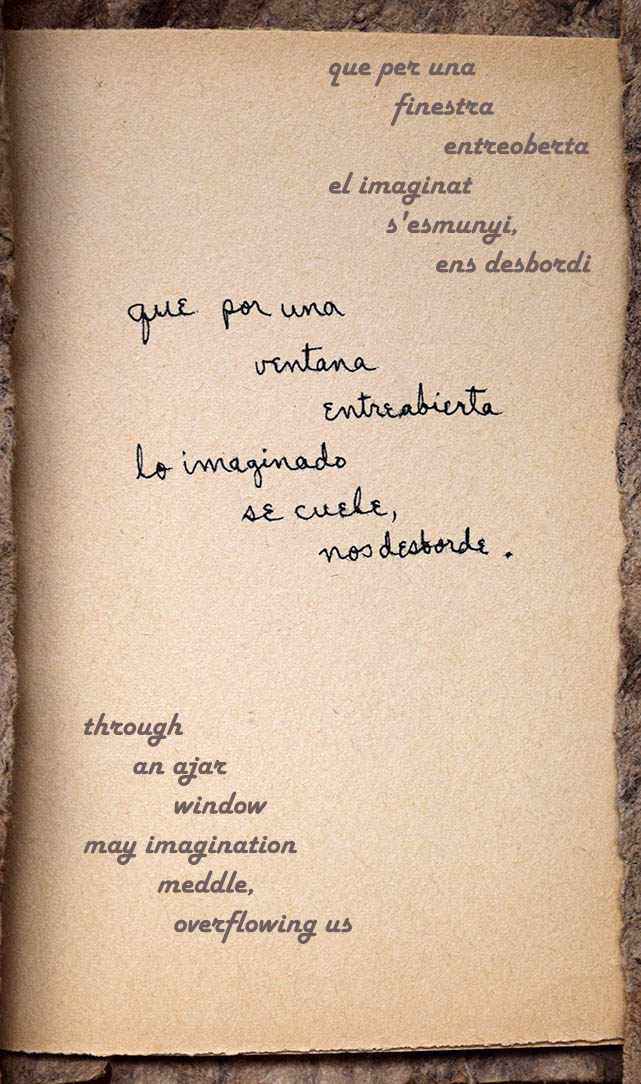 que per una
finestra
entreoberta
el imaginat
s'esmunyi,
ens desbordi
que por una
ventana
entreabierta
lo imaginado
se cuele,
nos desborde.
through
an ajar
window
may imagination
meddle,
overflowing us